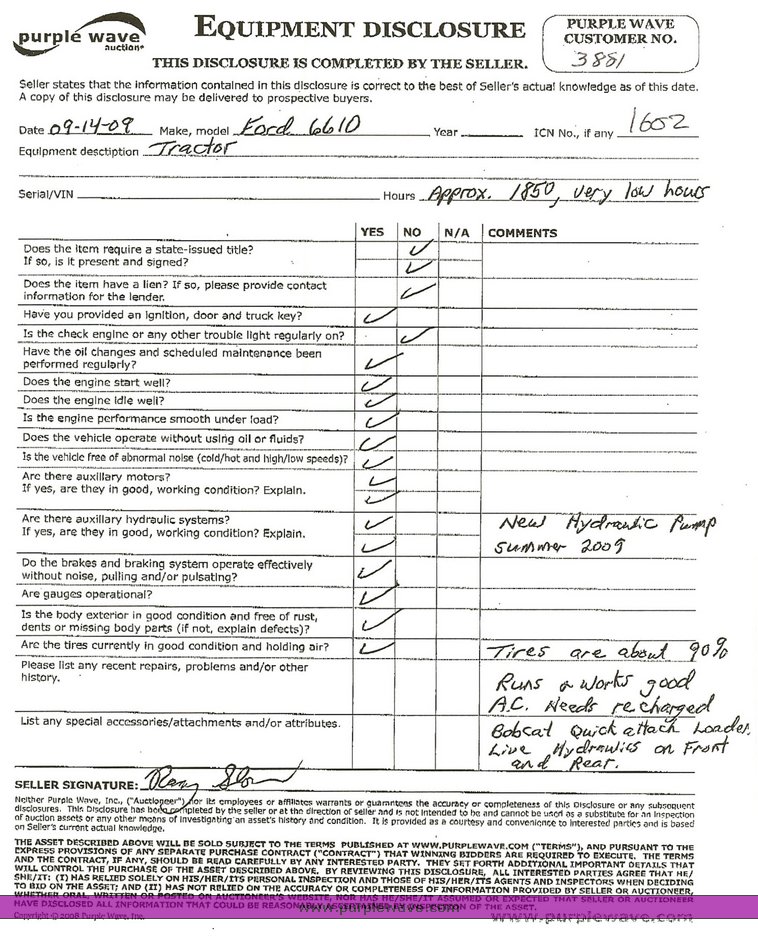 purple wave
auction
EQUIPMENT DISCLOSURE
THIS DISCLOSURE IS COMPLETED BY THE SELLER.
PURPLE WAVE
CUSTOMER NO.
3881
Seller states that the information contained in this disclosure is correct to the best of Seller's actual knowledge as of this date.
A copy of this disclosure may be delivered to prospective buyers.
Date 09-14-09 Make, model Ford 6610 Year ICN No., if any 1602
Equipment desctiption Tractor
Serial/VIN Hours Approx. 1850, very low hours
YES NO N/A COMMENTS
Does the item require a state-issued title? ✓
If so, is it present and signed? ✓
Does the item have a lien? If so, please provide contact
information for the lender. ✓
Have you provided an ignition, door and truck key? ✓
Is the check engine or any other trouble light regularly on? ✓
Have the oil changes and scheduled maintenance been
performed regularly? ✓
Does the engine start well? ✓
Does the engine idle well? ✓
Is the engine performance smooth under load? ✓
Does the vehicle operate without using oil or fluids? ✓
Is the vehicle free of abnormal noise (cold/hot and high/low speeds)? ✓
Are there auxillary motors? ✓
If yes, are they in good, working condition? Explain. ✓
Are there auxillary hydraulic systems? ✓ New Hydraulic Pump
If yes, are they in good, working condition? Explain. ✓ summer 2009
Do the brakes and braking system operate effectively
without noise, pulling and/or pulsating? ✓
Are gauges operational? ✓
Is the body exterior in good condition and free of rust,
dents or missing body parts (if not, explain defects)? ✓
Are the tires currently in good condition and holding air? ✓ Tires are about 90%
Please list any recent repairs, problems and/or other
history.
Runs & works good
A.C. Needs recharged
List any special accessories/attachments and/or attributes.
Bobcat Quick attach Loader.
Live Hydrawlics on Front
and Rear.
SELLER SIGNATURE:
Neither Purple Wave, Inc., ("Auctioneer") nor its employees or affiliates warrants or guarantees the accuracy or completeness of this Disclosure or any subsequent
disclosures. This Disclosure has been completed by the seller or at the direction of seller and is not intended to be and cannot be used as a substitute for an inspection
of auction assets or any other means of investigating an asset's history and condition. It is provided as a courtesy and convenience to interested parties and is based
on Seller's current actual knowledge.
THE ASSET DESCRIBED ABOVE WILL BE SOLD SUBJECT TO THE TERMS PUBLISHED AT WWW.PURPLEWAVE.COM ("TERMS"), AND PURSUANT TO THE
EXPRESS PROVISIONS OF ANY SEPARATE PURCHASE CONTRACT ("CONTRACT") THAT WINNING BIDDERS ARE REQUIRED TO EXECUTE. THE TERMS
AND THE CONTRACT, IF ANY, SHOULD BE READ CAREFULLY BY ANY INTERESTED PARTY. THEY SET FORTH ADDITIONAL IMPORTANT DETAILS THAT
WILL CONTROL THE PURCHASE OF THE ASSET DESCRIBED ABOVE. BY REVIEWING THIS DISCLOSURE, ALL INTERESTED PARTIES AGREE THAT HE/
SHE/IT: (I) HAS RELIED SOLELY ON HIS/HER/ITS PERSONAL INSPECTION AND THOSE OF HIS/HER/ITS AGENTS AND INSPECTORS WHEN DECIDING
TO BID ON THE ASSET; AND (II) HAS NOT RELIED ON THE ACCURACY OR COMPLETENESS OF INFORMATION PROVIDED BY SELLER OR AUCTIONEER,
WHETHER ORAL, WRITTEN OR POSTED ON AUCTIONEER'S WEBSITE, NOR HAS HE/SHE/IT ASSUMED OR EXPECTED THAT SELLER OR AUCTIONEER
HAVE DISCLOSED ALL INFORMATION THAT COULD BE REASONABLY ASCERTAINED BY INSPECTION OF THE ASSET.
Copyright © 2008 Purple Wave, Inc.
www.purplewave.com
www.purplewave.com